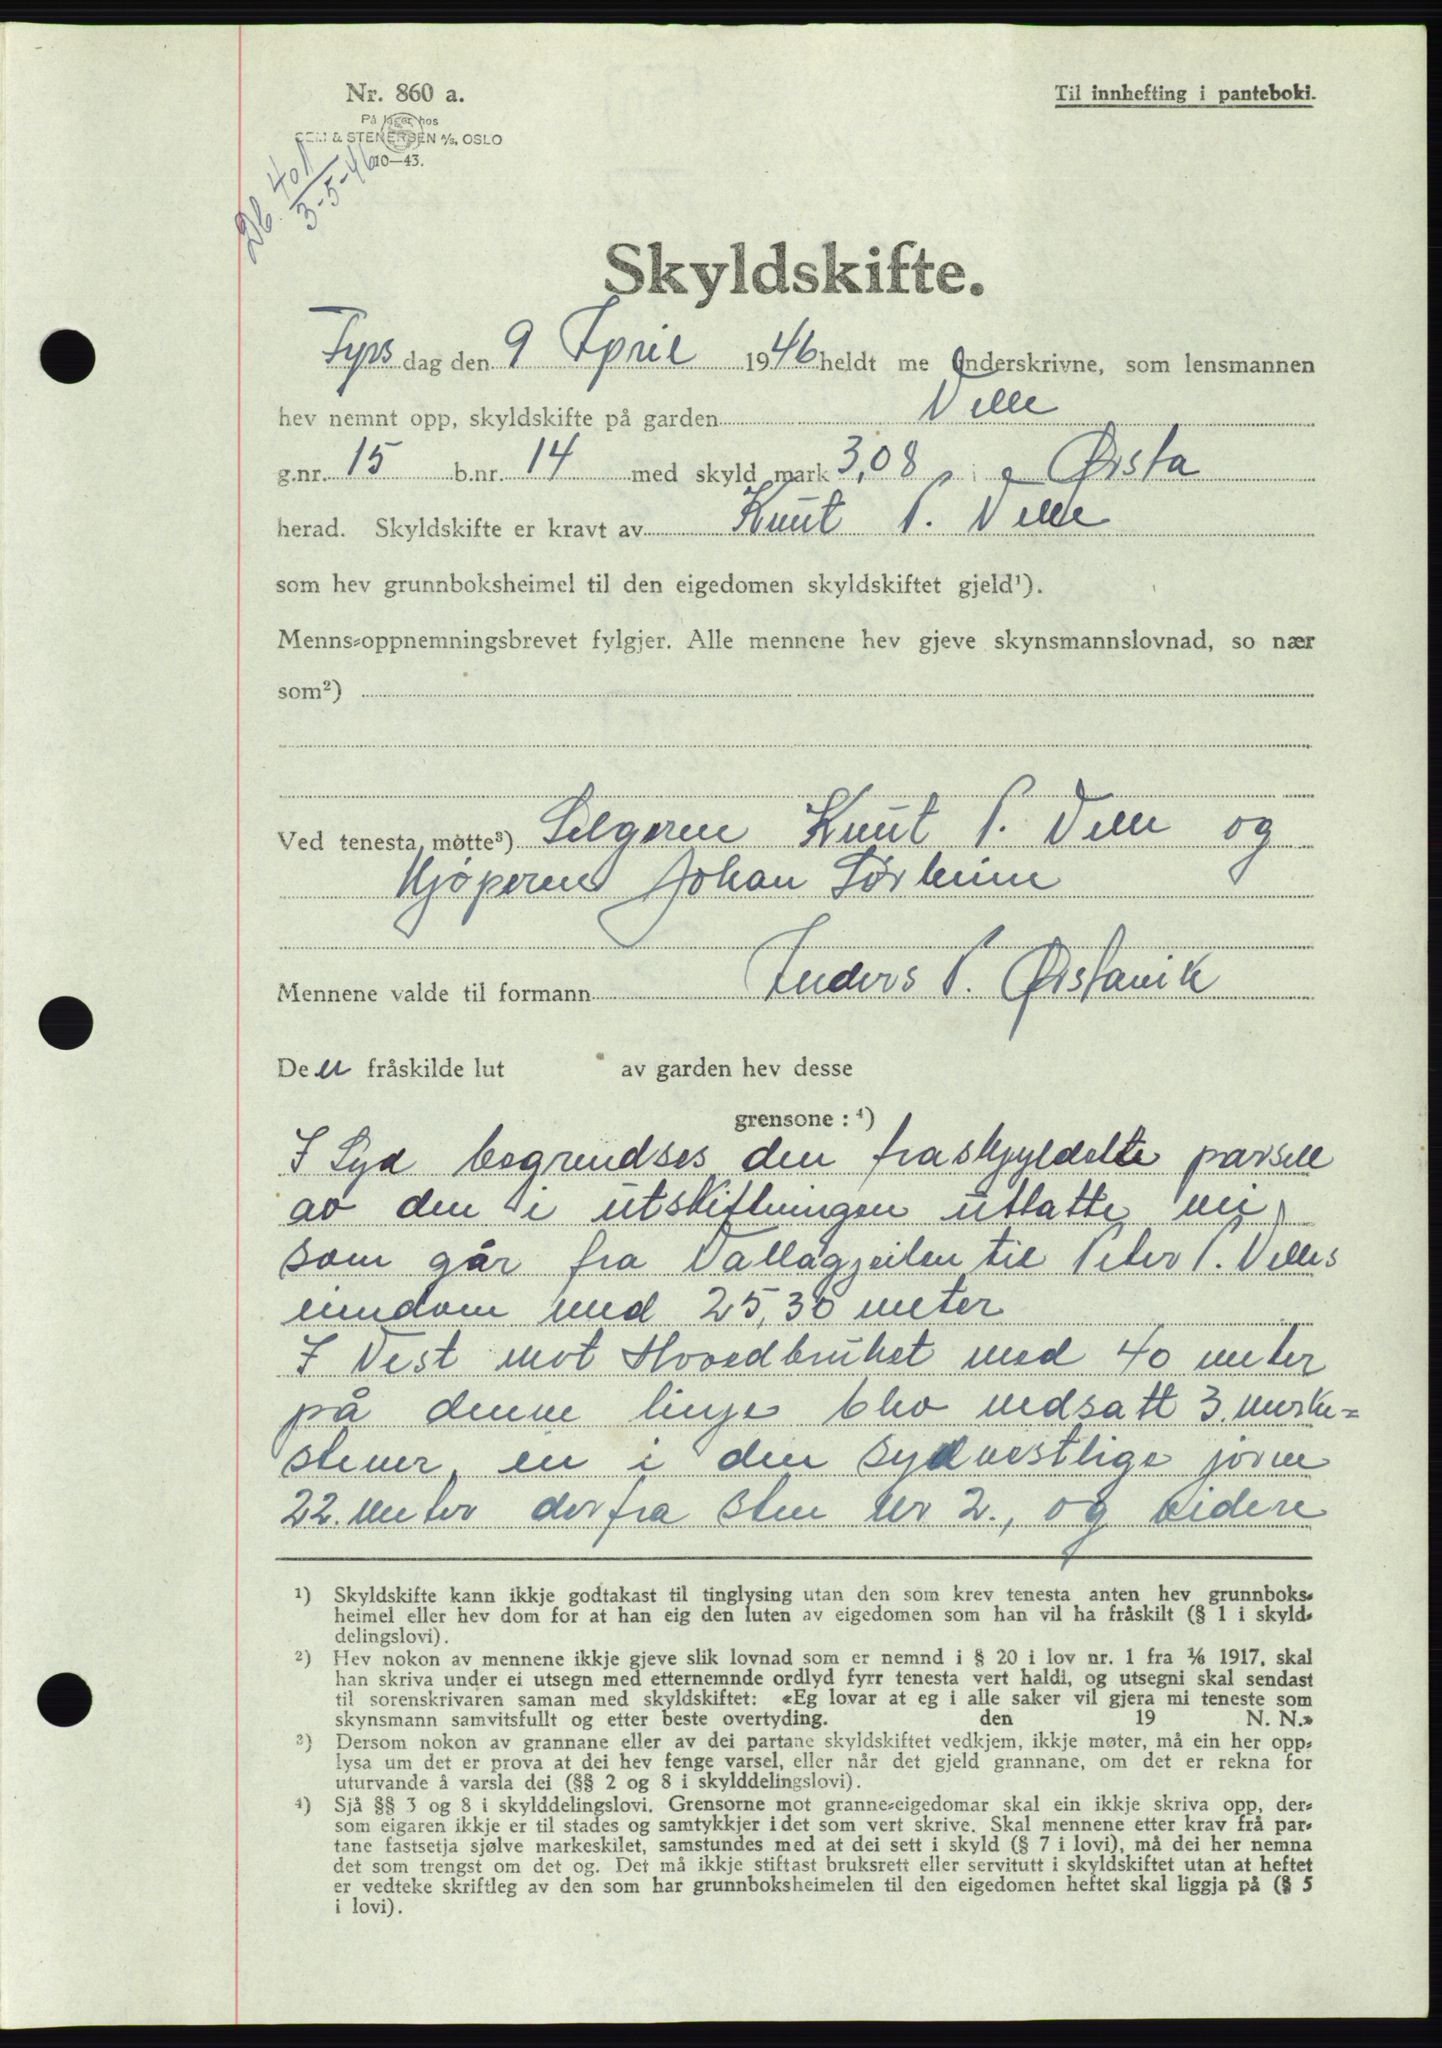 Nr. 860 a.
Til innhefting i panteboki.
På lager hos
SEM & STENERSEN A/S, OSLO
10—43.
Db 401
3-5-46
Skyldskifte.
Tyrs dag den 9 April 1946 heldt me underskrivne, som lensmannen
hev nemnt opp, skyldskifte på garden Velle
g.nr. 15 b.nr. 14 med skyld mark 3,08 i Ørsta
herad. Skyldskifte er kravt av Knut P. Velle
som hev grunnboksheimel til den eigedomen skyldskiftet gjeld¹).
Menns-oppnemningsbrevet fylgjer. Alle mennene hev gjeve skynsmannslovnad, so nær
som²)
Ved tenesta møtte³) Selgeren Knut P. Velle og
Kjøperen Johan Sørheim
Mennene valde til formann Anders P. Ørstavik
Den fråskilde lut av garden hev desse
grensone: ⁴)
I Syd begrendses den fraskjyldelte parsell
av den i utskiftningen utlatte vei,
som går fra Vallagjeilen til Peter P. Velles
eiendom med 25,30 meter
I Vest mot Hovedbruket med 40 meter
på denne linje blev nedsatt 3. merke=
stener, en i den sydvestlige jørne
22. meter derfra sten nr 2., og videre
¹) Skyldskifte kann ikkje godtakast til tinglysing utan den som krev tenesta anten hev grunnboks-
heimel eller hev dom for at han eig den luten av eigedomen som han vil ha fråskilt (§ 1 i skyld-
delingslovi).
²) Hev nokon av mennene ikkje gjeve slik lovnad som er nemnd i § 20 i lov nr. 1 fra ⅙ 1917, skal
han skriva under ei utsegn med etternemnde ordlyd fyrr tenesta vert haldi, og utsegni skal sendast
til sorenskrivaren saman med skyldskiftet: «Eg lovar at eg i alle saker vil gjera mi teneste som
skynsmann samvitsfullt og etter beste overtyding. den 19 N. N.»
³) Dersom nokon av grannane eller av dei partane skyldskiftet vedkjem, ikkje møter, må ein her opp-
lysa um det er prova at dei hev fenge varsel, eller når det gjeld grannane, om det er rekna for
uturvande å varsla dei (§§ 2 og 8 i skylddelingslovi).
⁴) Sjå §§ 3 og 8 i skylddelingslovi. Grensorne mot granne-eigedomar skal ein ikkje skriva opp, der-
som eigaren ikkje er til stades og samtykkjer i det som vert skrive. Skal mennene etter krav frå par-
tane fastsetja sjølve markeskilet, samstundes med at dei sett i skyld (§ 7 i lovi), må dei her nemna
det som trengst om det og. Det må ikkje stiftast bruksrett eller servitutt i skyldskiftet utan at heftet
er vedteke skriftleg av den som har grunnboksheimelen til den eigedomen heftet skal liggja på (§ 5
i lovi).